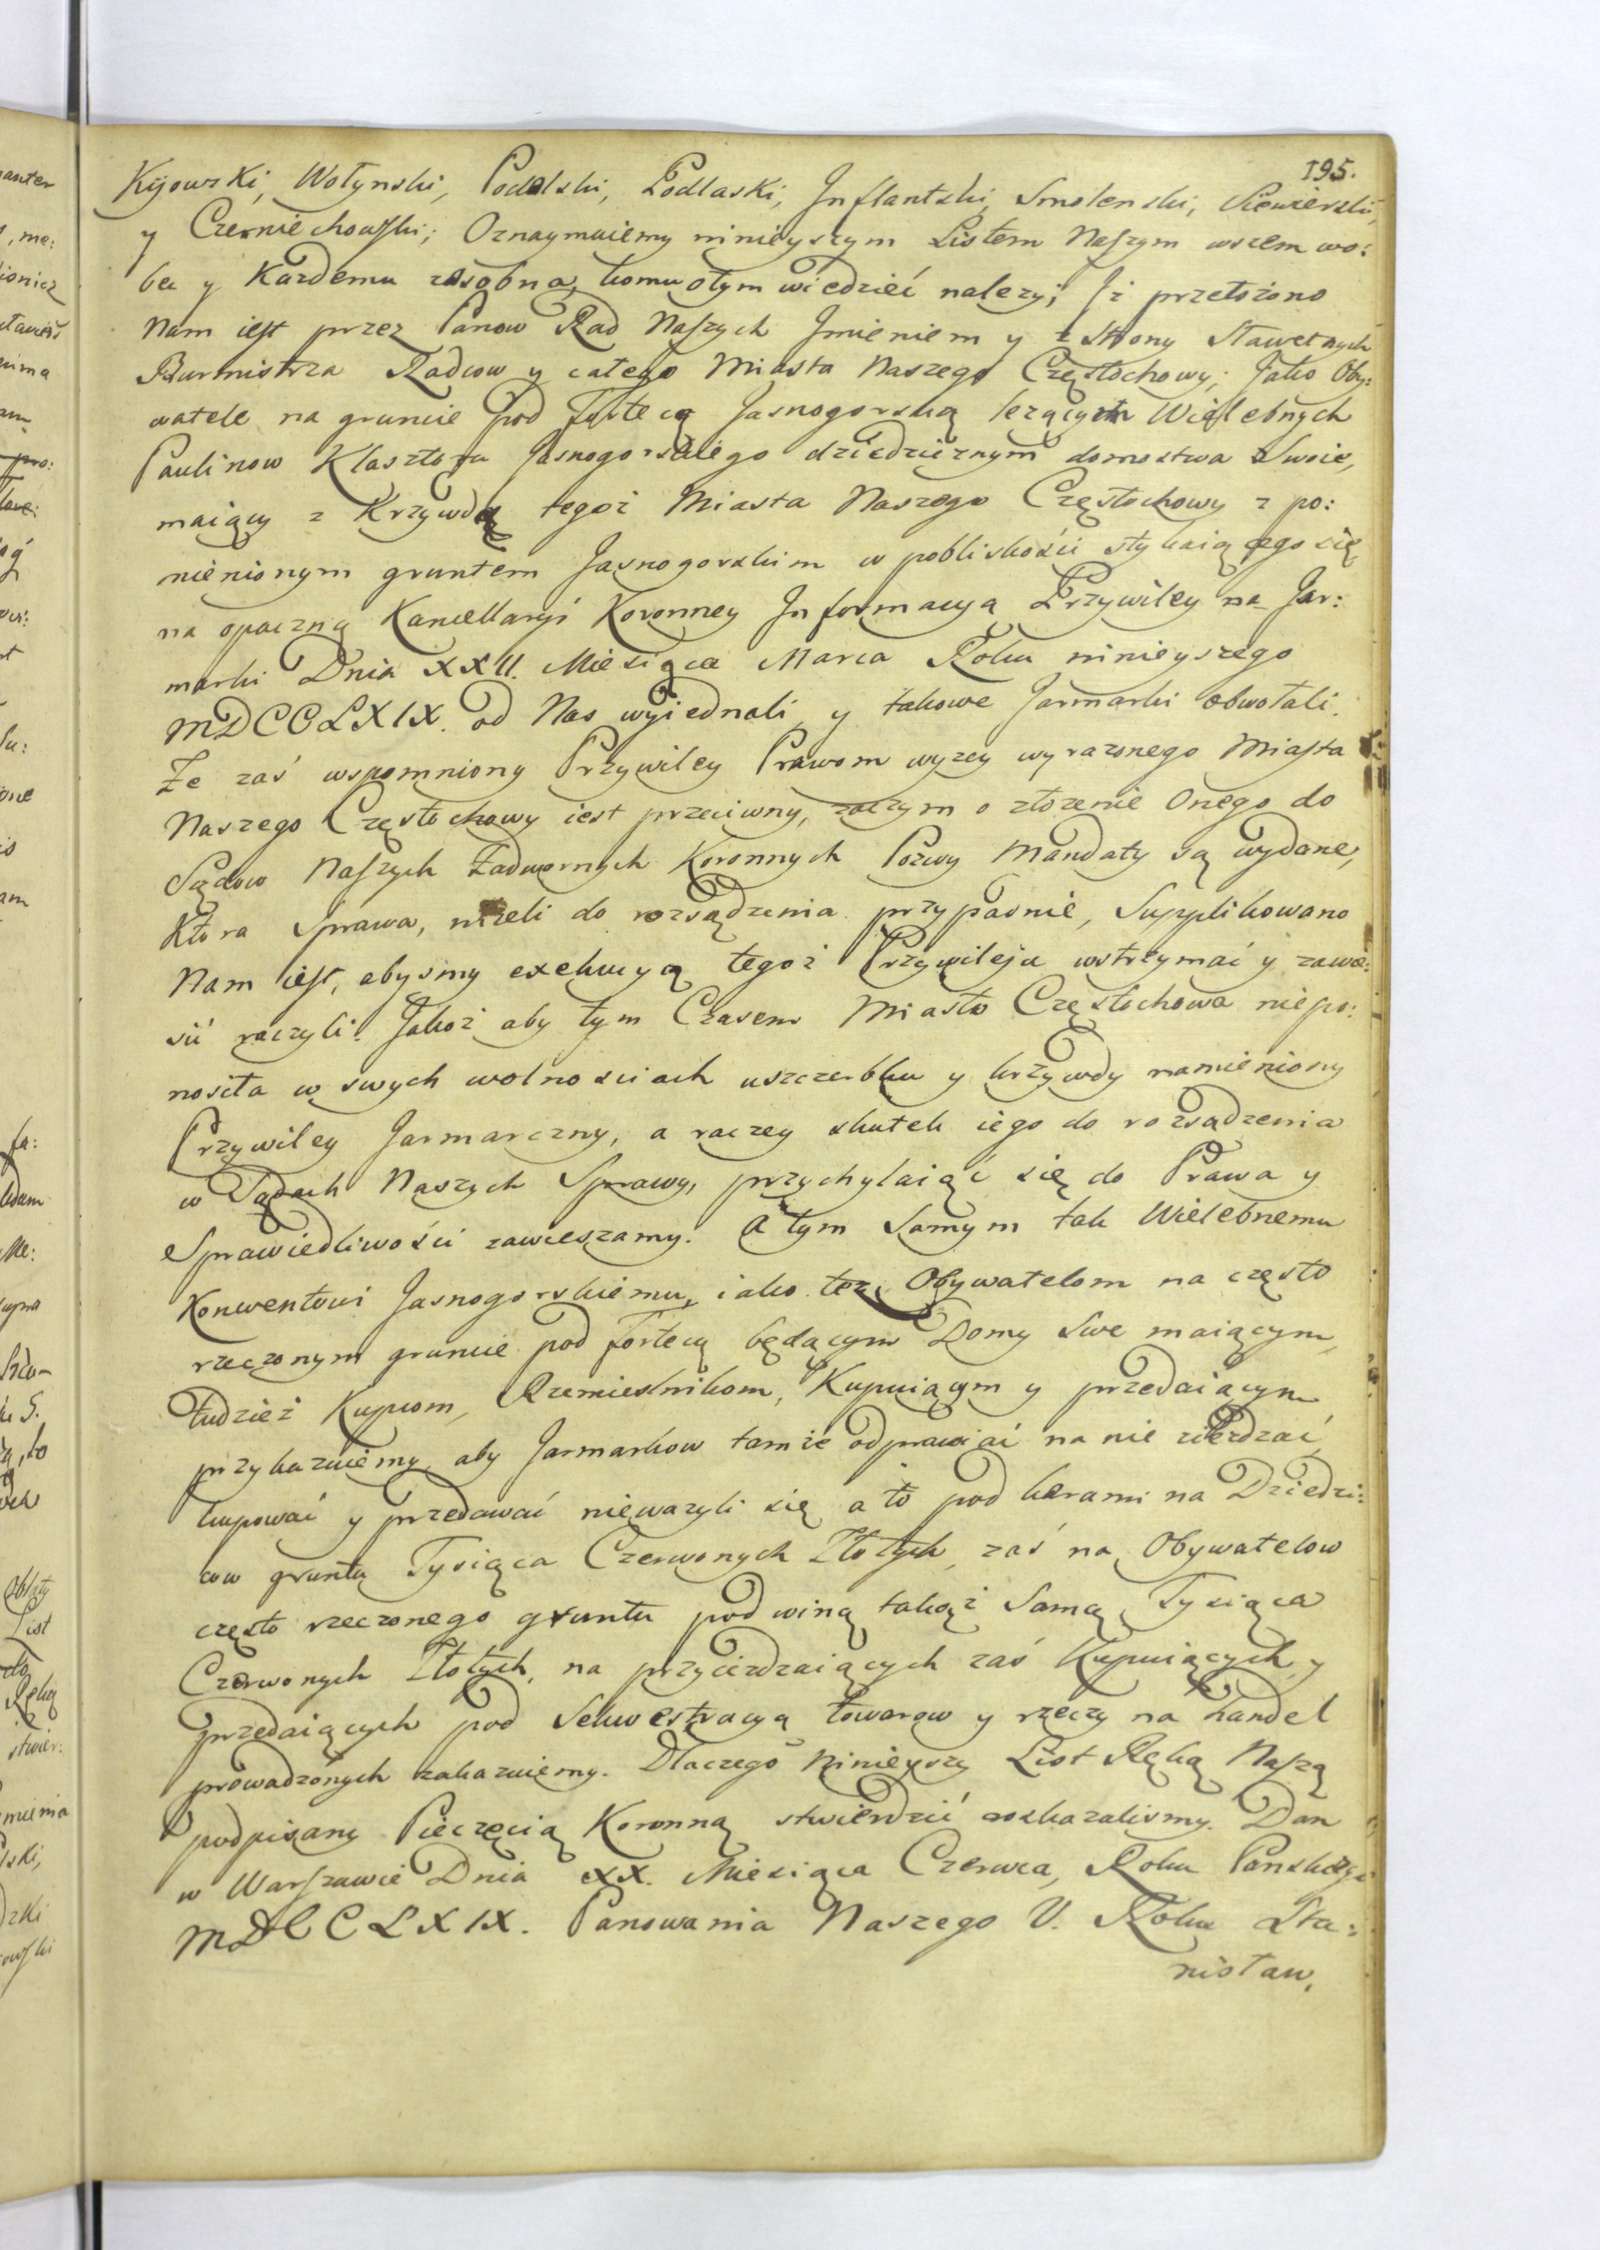 195.
Kijowski, Wołynski, Podolski, Podlaski, Inflantski, Smolenski, Siewierski,
y Czerniechowski; Oznaymuiemy ninieyszym Listem Naszym wszem wo:
bec y Kazdemu zosobna, komu otym wiedzieć nalezy; Iż przełożono
Nam iest przez Panow Rad Naszych Imieniem y z strony Sławetnych
Burmistrza Radcow y całego Miasta Naszego Częstochowy; Jako Oby:
watele na gruncie pod Fortecą Jasnogorską lezącym Wielebnych
Paulinow Klasztoru Jasnogorskiego dziedzicznym domostwa Swoie,
maiący z Krzywdą tegoż Miasta Naszego Częstochowy z po:
mienionym gruntem Jasnogorskim w pobliskości stykaiącego się
na opaczną Kancellaryi Koronney Informacyą Przywiley na Jar:
marki Dnia XXII. Miesiąca Marca Roku ninieyszego
MDCCLXIX. od Nas wyiednali y takowe Jarmarki obwołali.
Ze zaś wspomniony Przywiley Prawom wyzey wyrazonego Miasta
Naszego Częstochowy iest przeciwny, zaczym o złozenie Onego do
Sądow Naszych Zadwornych Koronnych Pozwy Mandaty są wydane,
Ktora Sprawa, nizeli do rozsądzenia przypadnie, Supplikowano
Nam iest, abysmy exekucyą tegoż Przywileju wstrzymać y zawie:
sić raczyli. Jakoż aby tym Czasem Miasto Częstochowa niepo:
nosiła w swych wolnosciach uszczerbku y krzywdy namieniony
Przywiley Jarmarczny, a raczey skutek iego do rozsądzenia
w Sądach Naszych Sprawy, przychylaiąc się do Prawa y
Sprawiedliwości zawieszamy. A tym Samym tak Wielebnemu
Konwentowi Jasnogorskiemu, iako tez Obywatelom na często
rzeczonym gruncie pod Fortecą będącym Domy Swe maiącym,
tudzież Kupcom, Rzemieslnikom, Kupuiącym y przedaiącym
przykazuiemy, aby Jarmarkow tamże odprawiać na nie ziezdzać,
kupować y przedawać niewazyli się, a to pod karami na Dziedzi:
cow gruntu Tysiąca Czerwonych Złotych, zaś na Obywatelow
często rzeczonego gruntu pod winą takąż Samą Tysiąca
Czerwonych Złotych, na przyiezdzaiących zaś Kupuiących y
przedaiących pod Sekwestracyą towarow y rzeczy na handel
prowadzonych zakazuiemy. Dlaczego Ninieyszy List Ręką Naszą
podpisany Pieczęcią Koronną stwierdzić rozkazalismy. Dan
w Warszawie Dnia XX. Miesiąca Czerwca, Roku Panskiego
MDCCLXIX. Panowania Naszego V. Roku Sta:
nisław,